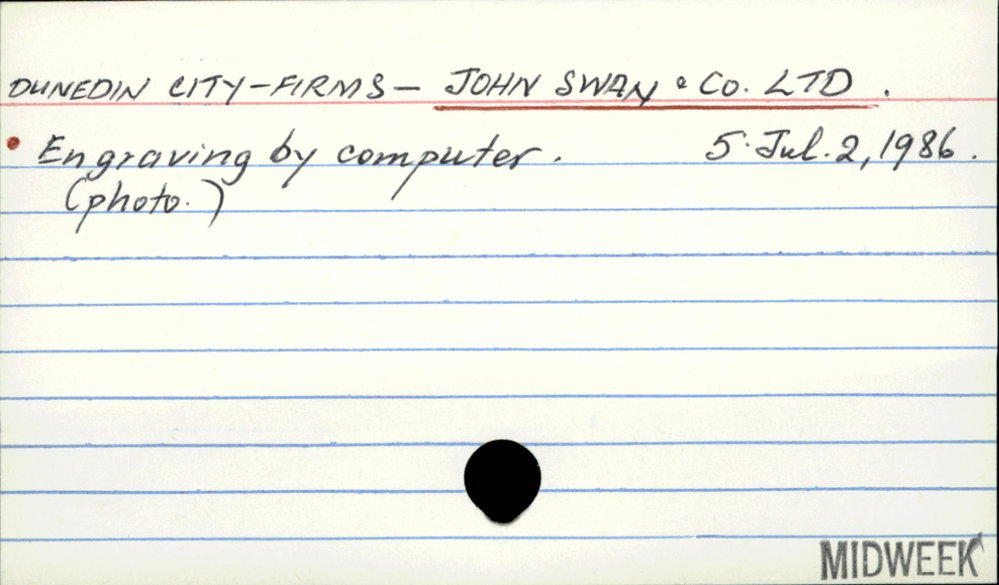 DUNEDIN CITY-FIRMS- JOHN SWAN & Co. LTD.
• Engraving by computer. 5. Jul. 2, 1986.
(photo.)
MIDWEEK